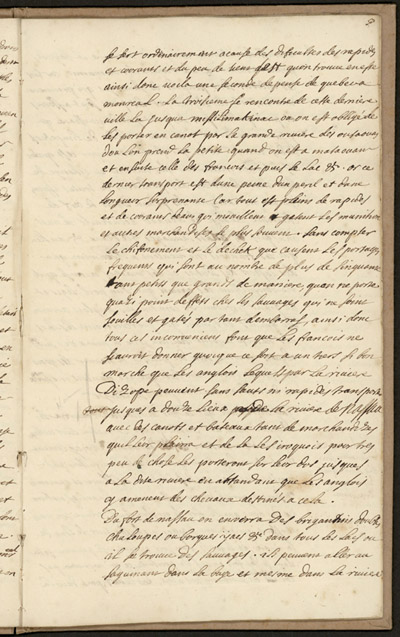 se sert ordinairement a cause des dificultes des rapides
et courants et du peu de vent quon trouve en este
ainsi donc voila une seconde depense de quebec a
monreal. La troisieme se rencontre de cette derniere
ville la jusque missilimakinac ou on est obligé de
les porter en canot par la grande riviere des outaouas
dou lon prend la petite quand on est a mataouan
et en suite celle des francois et puis le Lac &c. or ce
dernier transport est dune peine dun peril et dune
longueur surprenante car tout est plains de rapides
et de courans deau qui mouillent et gatent les munitions
et autres marchandises le plus souvent. Sans compter
le chifonement et le dechet que causent les portages
frequens qui sont au nombre de plus de cinquante
tant petits que grands de maniere quon ne porte
quasi point deffets ches les sauvages qui ne soint
souilles et gatés par tant dembarras, ainsi donc
tous ces inconveniens font que les francois ne
scauroit donner quoique ce soit a un tiers si bon
marche que les anglois lesquels par la riviere
peuvent sans sauts ni rapides transporter
jusques a la riviere de
avec des canots et bateaux tant de marchandises
quil leur plaira et de la les iroquois pour tres
peu de chose les porteront sur leur dos jusques
a la dite riviere en attendant que les anglois
y amenent des chevaux destinés a cela.
Du fort de nassau on enverra des brigantins
chaloupes ou barques &c dans tous les lacs ou
il se trouve des sauvages. ils peuvent aller au
saguinant dans la baye et mesme dans la riviere